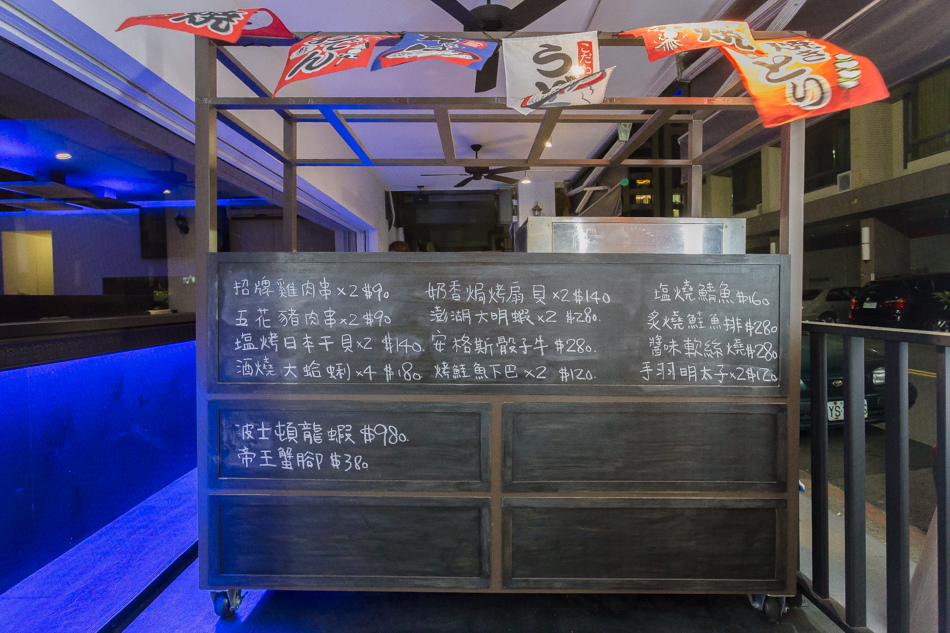 焼
うどん
こだわり
焼とり
招牌雞肉串x2 $90
五花豬肉串x2 $90
塩烤日本干貝x2 $140
酒燒大蛤蜊x4 $180
奶香焗烤扇貝x2 $140
澎湖大明蝦x2 $280.
安格斯骰子牛 $280.
烤鮭魚下巴x2 $120.
塩燒鯖魚$160
炙燒鮭魚排$280
醬味軟絲燒$280
手羽明太子x2$120
波士頓龍蝦 $980.
帝王蟹腳 $380